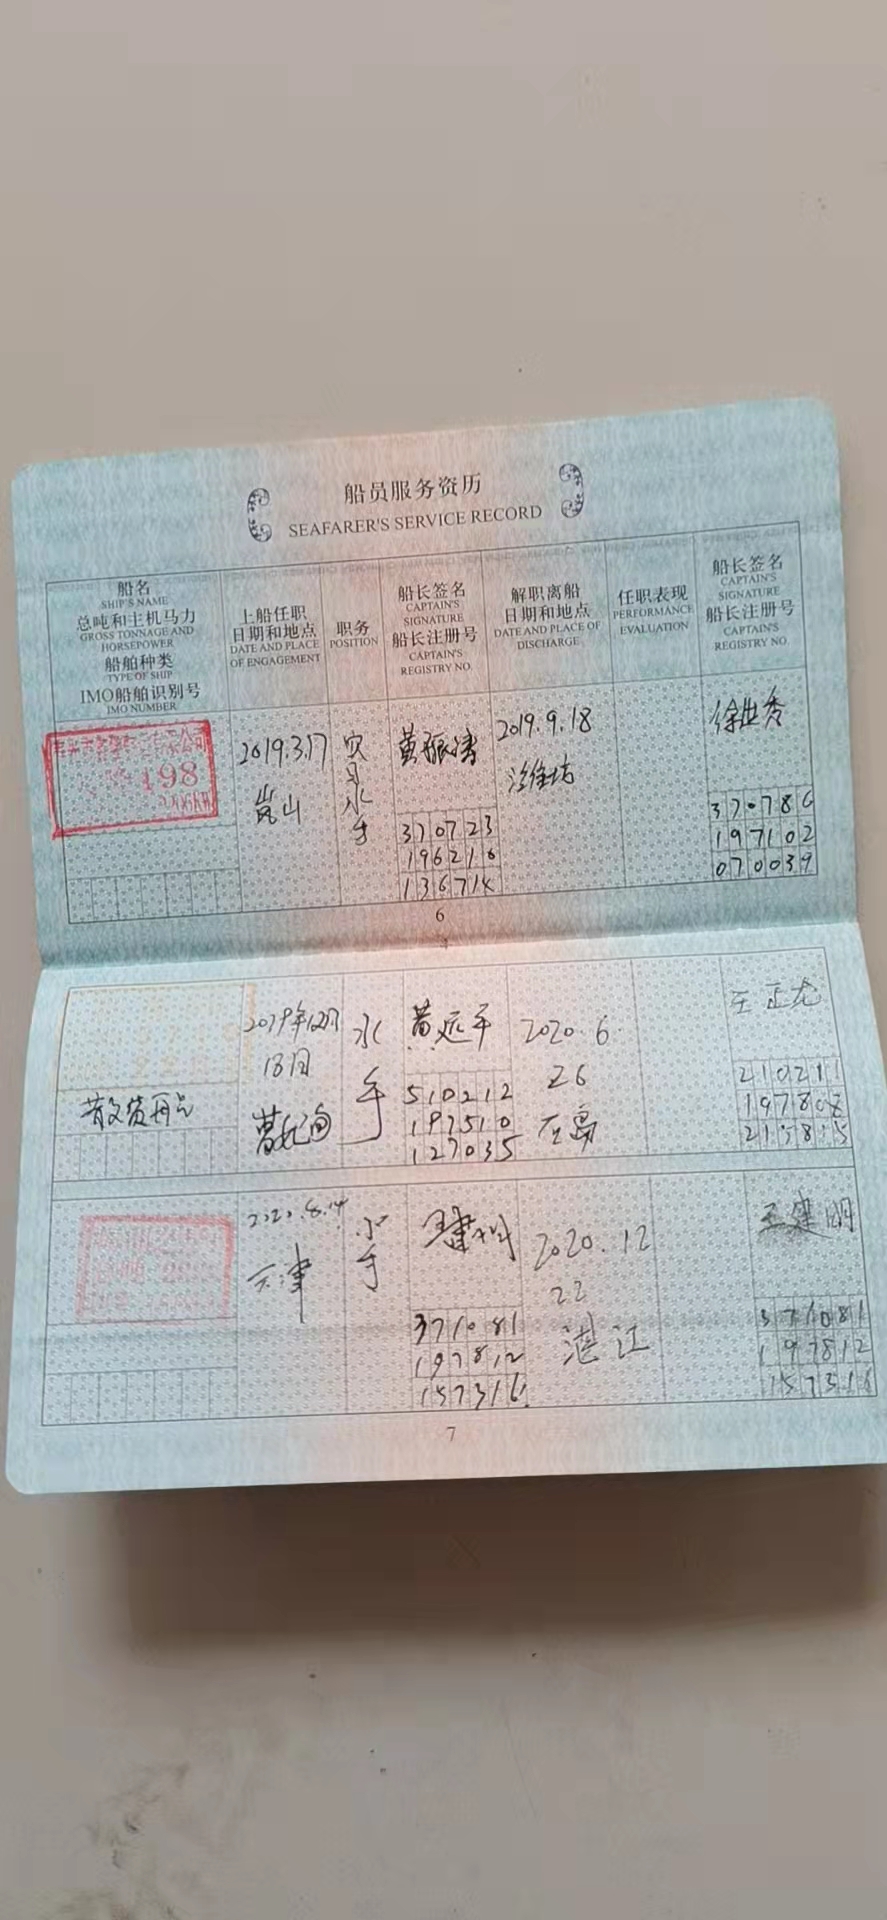 船员服务资历
SEAFARER'S SERVICE RECORD
船名
SHIP'S NAME
总吨和主机马力
GROSS TONNAGE AND
HORSEPOWER
船舶种类
TYPE OF SHIP
IMO船舶识别号
IMO NUMBER
上船任职
日期和地点
DATE AND PLACE
OF ENGAGEMENT
职务
POSITION
船长签名
CAPTAIN'S
SIGNATURE
船长注册号
CAPTAIN'S
REGISTRY NO.
解职离船
日期和地点
DATE AND PLACE OF
DISCHARGE
任职表现
PERFORMANCE
EVALUATION
船长签名
CAPTAIN'S
SIGNATURE
船长注册号
CAPTAIN'S
REGISTRY NO.
198
2019.3.17
岚山
实习水手
黄振涛
370723
2019.9.18
潍坊
徐世秀
370786
197102
070039
6
2019年12月
18日
水手
黄远平
510212
197510
127035
2020.6
26
王正龙
197808
2020.8.14
天津
水手
371081
197812
157316
2020.12
22
湛江
王建明
371081
197812
157316
7